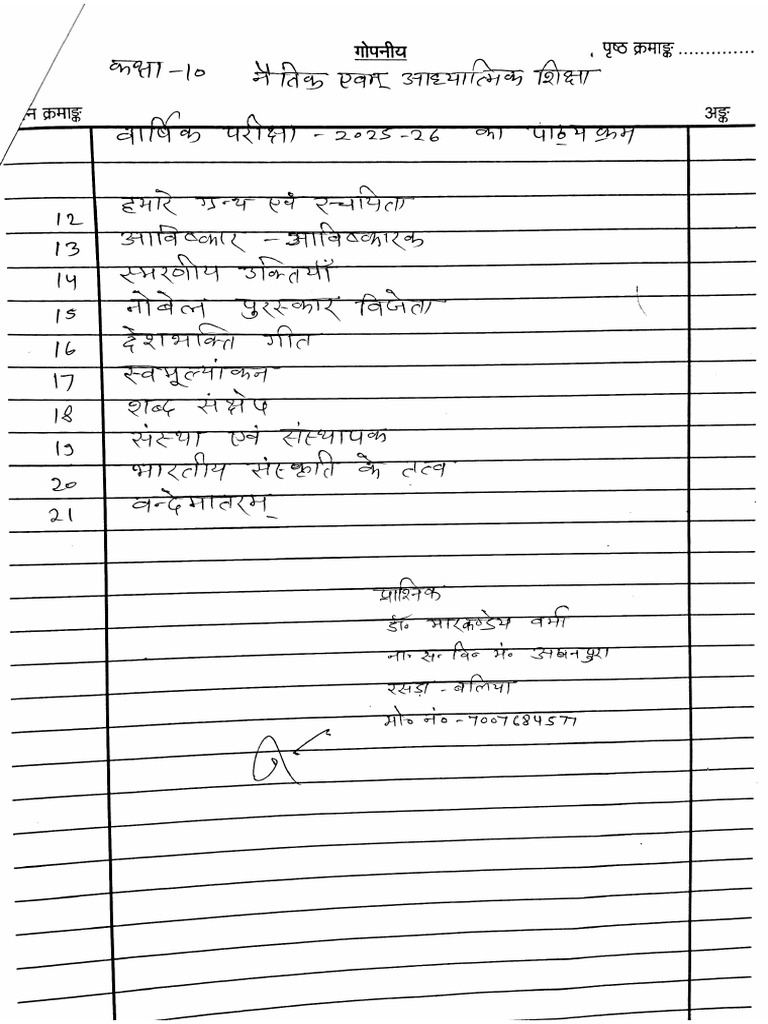 गोपनीय
पृष्ठ क्रमाङ्क ..............
कक्षा -10 नैतिक एवम् आध्यात्मिक शिक्षा
न क्रमाङ्क
अङ्क
वार्षिक परीक्षा - 2025-26 का पाठ्यक्रम
12 हमारे ग्रन्थ एवं रचयिता
13 आविष्कार - आविष्कारक
14 स्मरणीय उक्तियाँ
15 नोबेल पुरस्कार विजेता
16 देशभक्ति गीत
17 स्वमूल्यांकन
18 शब्द संक्षेप
19 संस्था एवं संस्थापक
20 भारतीय संस्कृति के तत्व
21 वन्देमातरम्
प्राश्निक
डॉ० मारकण्डेय वर्मा
ना० स० वि० मं०
रसड़ा - बलिया
मो० नं० - 7007684577